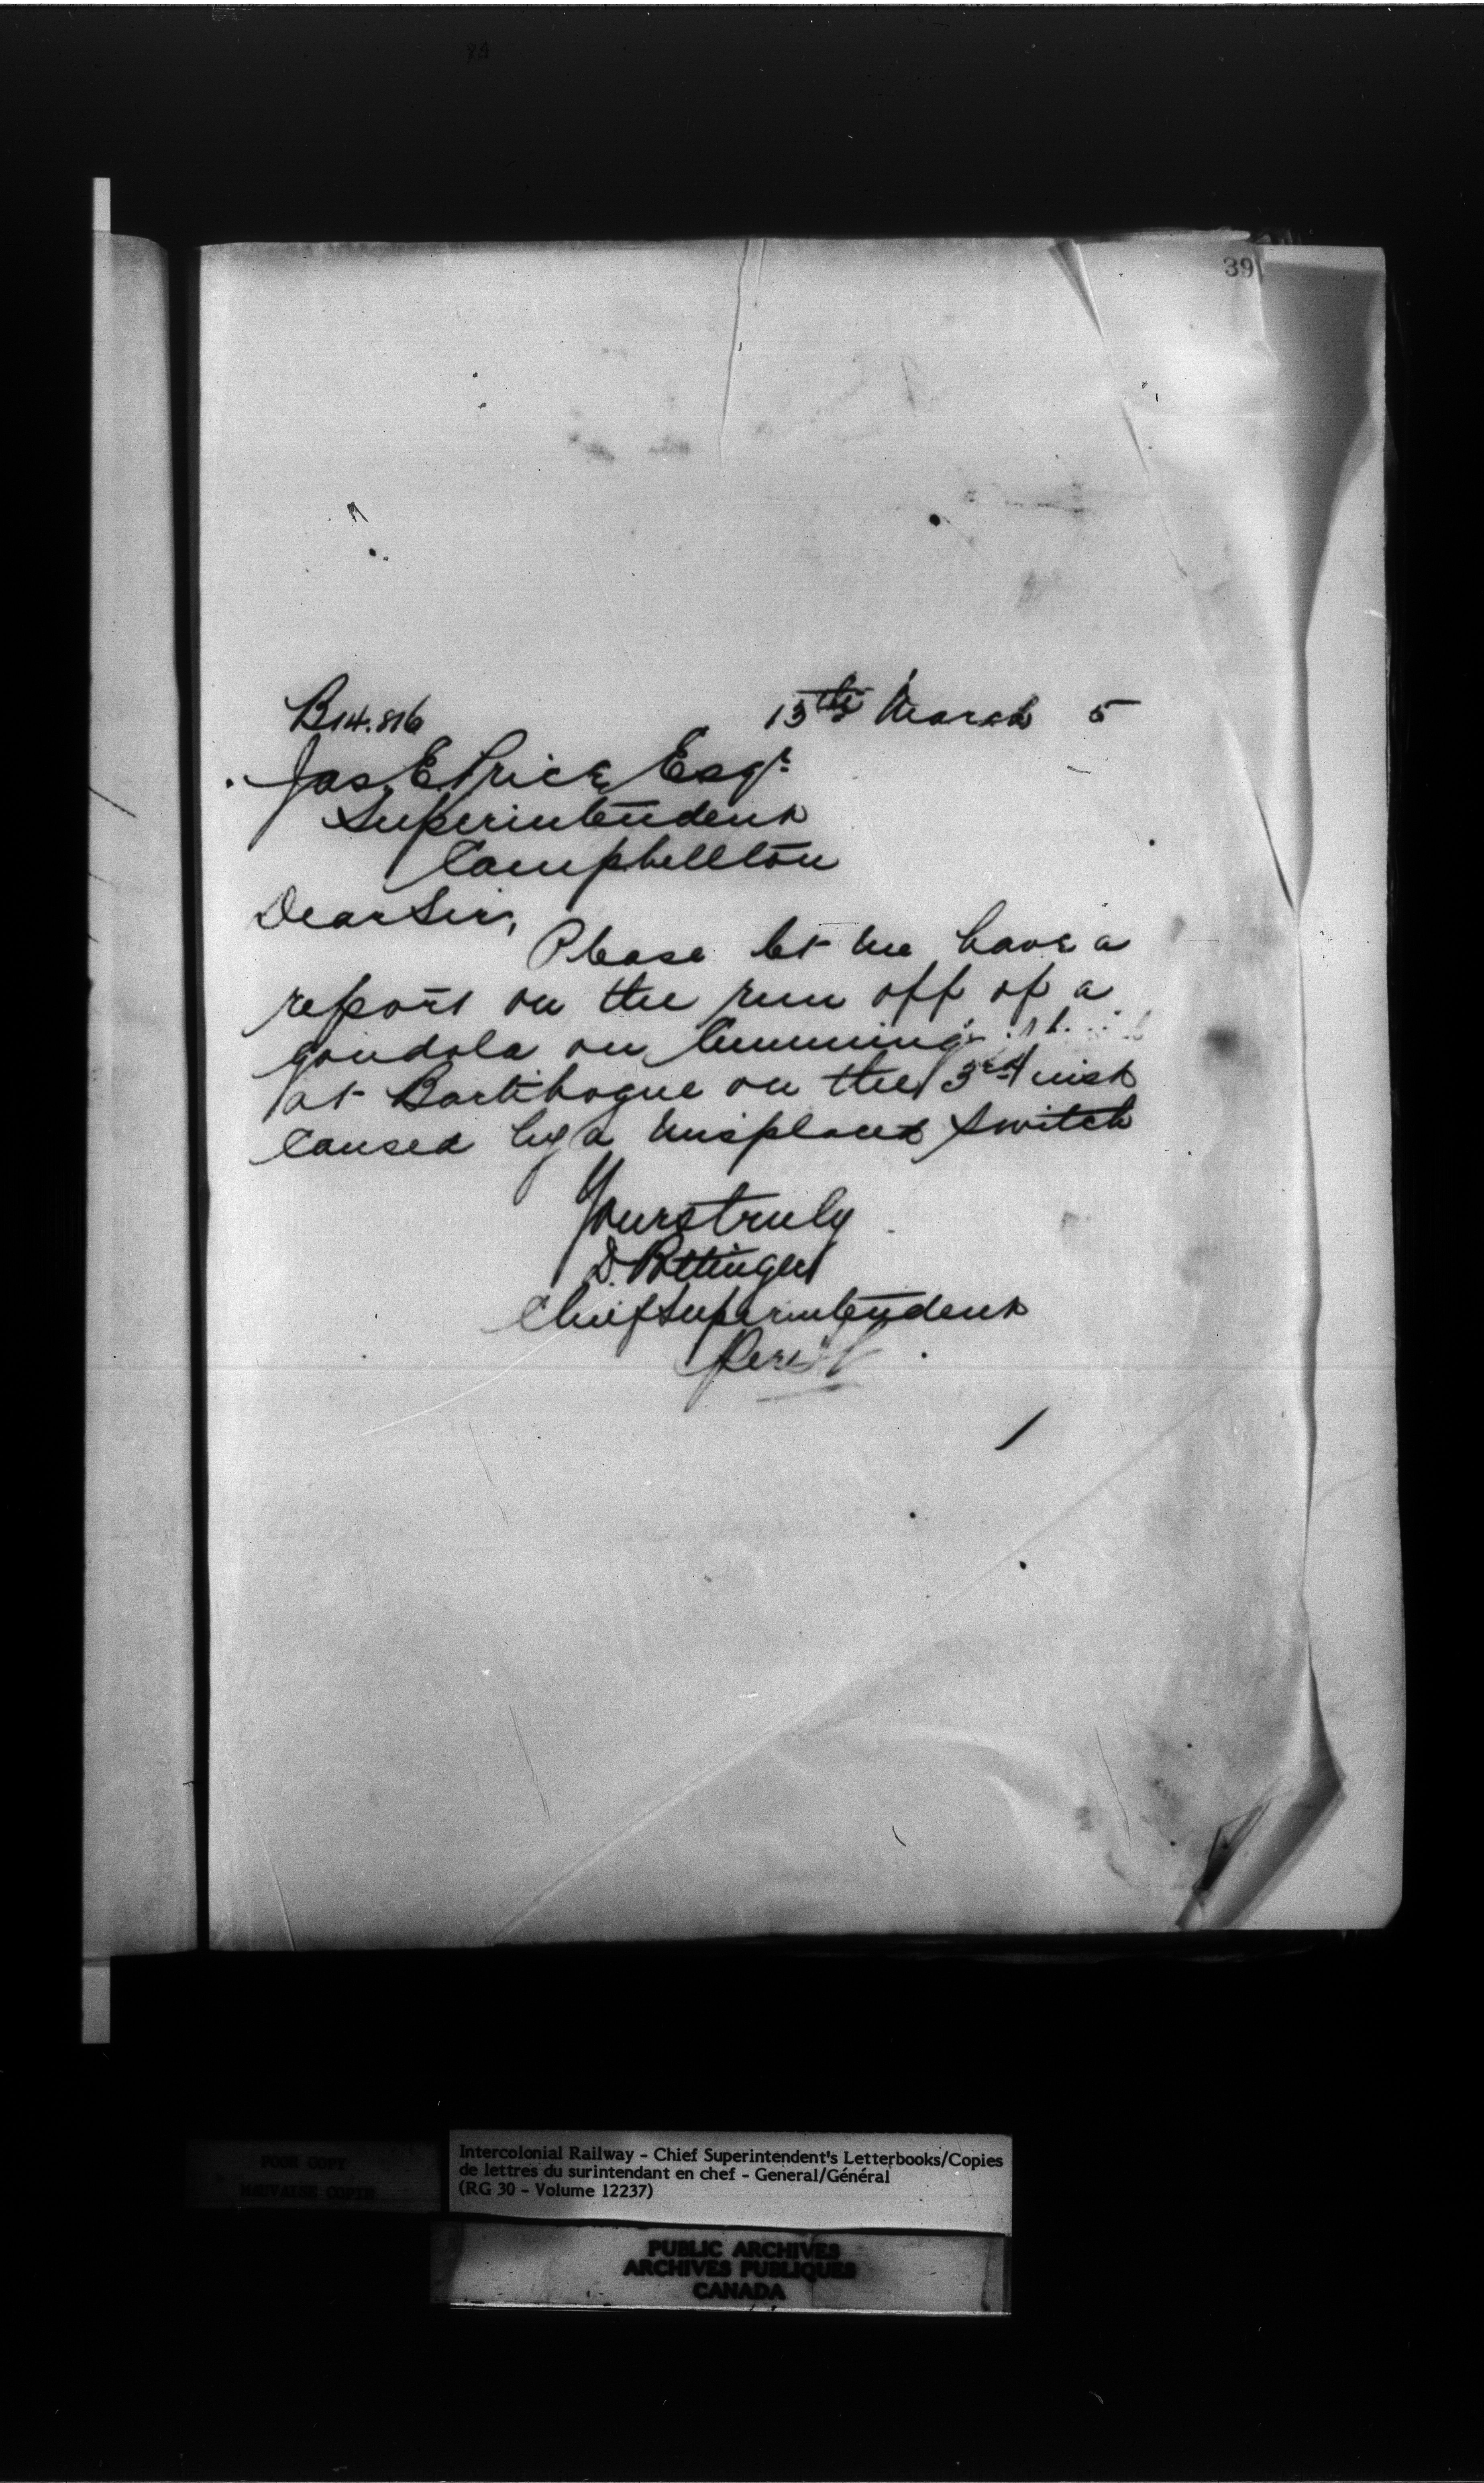 39
B14.816 13th March 5
Jas. E. Price, Esqr
Superintendent
Campbellton
Dear Sir,
Please let me have a
report on the run off of a
gondola on Cumming's
at Bartibogue on the 3rd inst
caused by a misplaced switch
Yours truly
D. Pottinger
Chief Superintendent
Per
Intercolonial Railway - Chief Superintendent's Letterbooks/Copies
de lettres du surintendant en chef - General/Général
(RG 30 - Volume 12237)
POOR COPY
MAUVAISE COPIE
PUBLIC ARCHIVES
ARCHIVES PUBLIQUES
CANADA